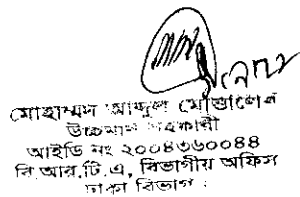 মোহাম্মদ আব্দুল
উচ্চমান সহকারী
আইডি নং ২০০৪৩৬০০৪৪
বি.আর.টি.এ, বিভাগীয় অফিস
ঢাকা বিভাগ।